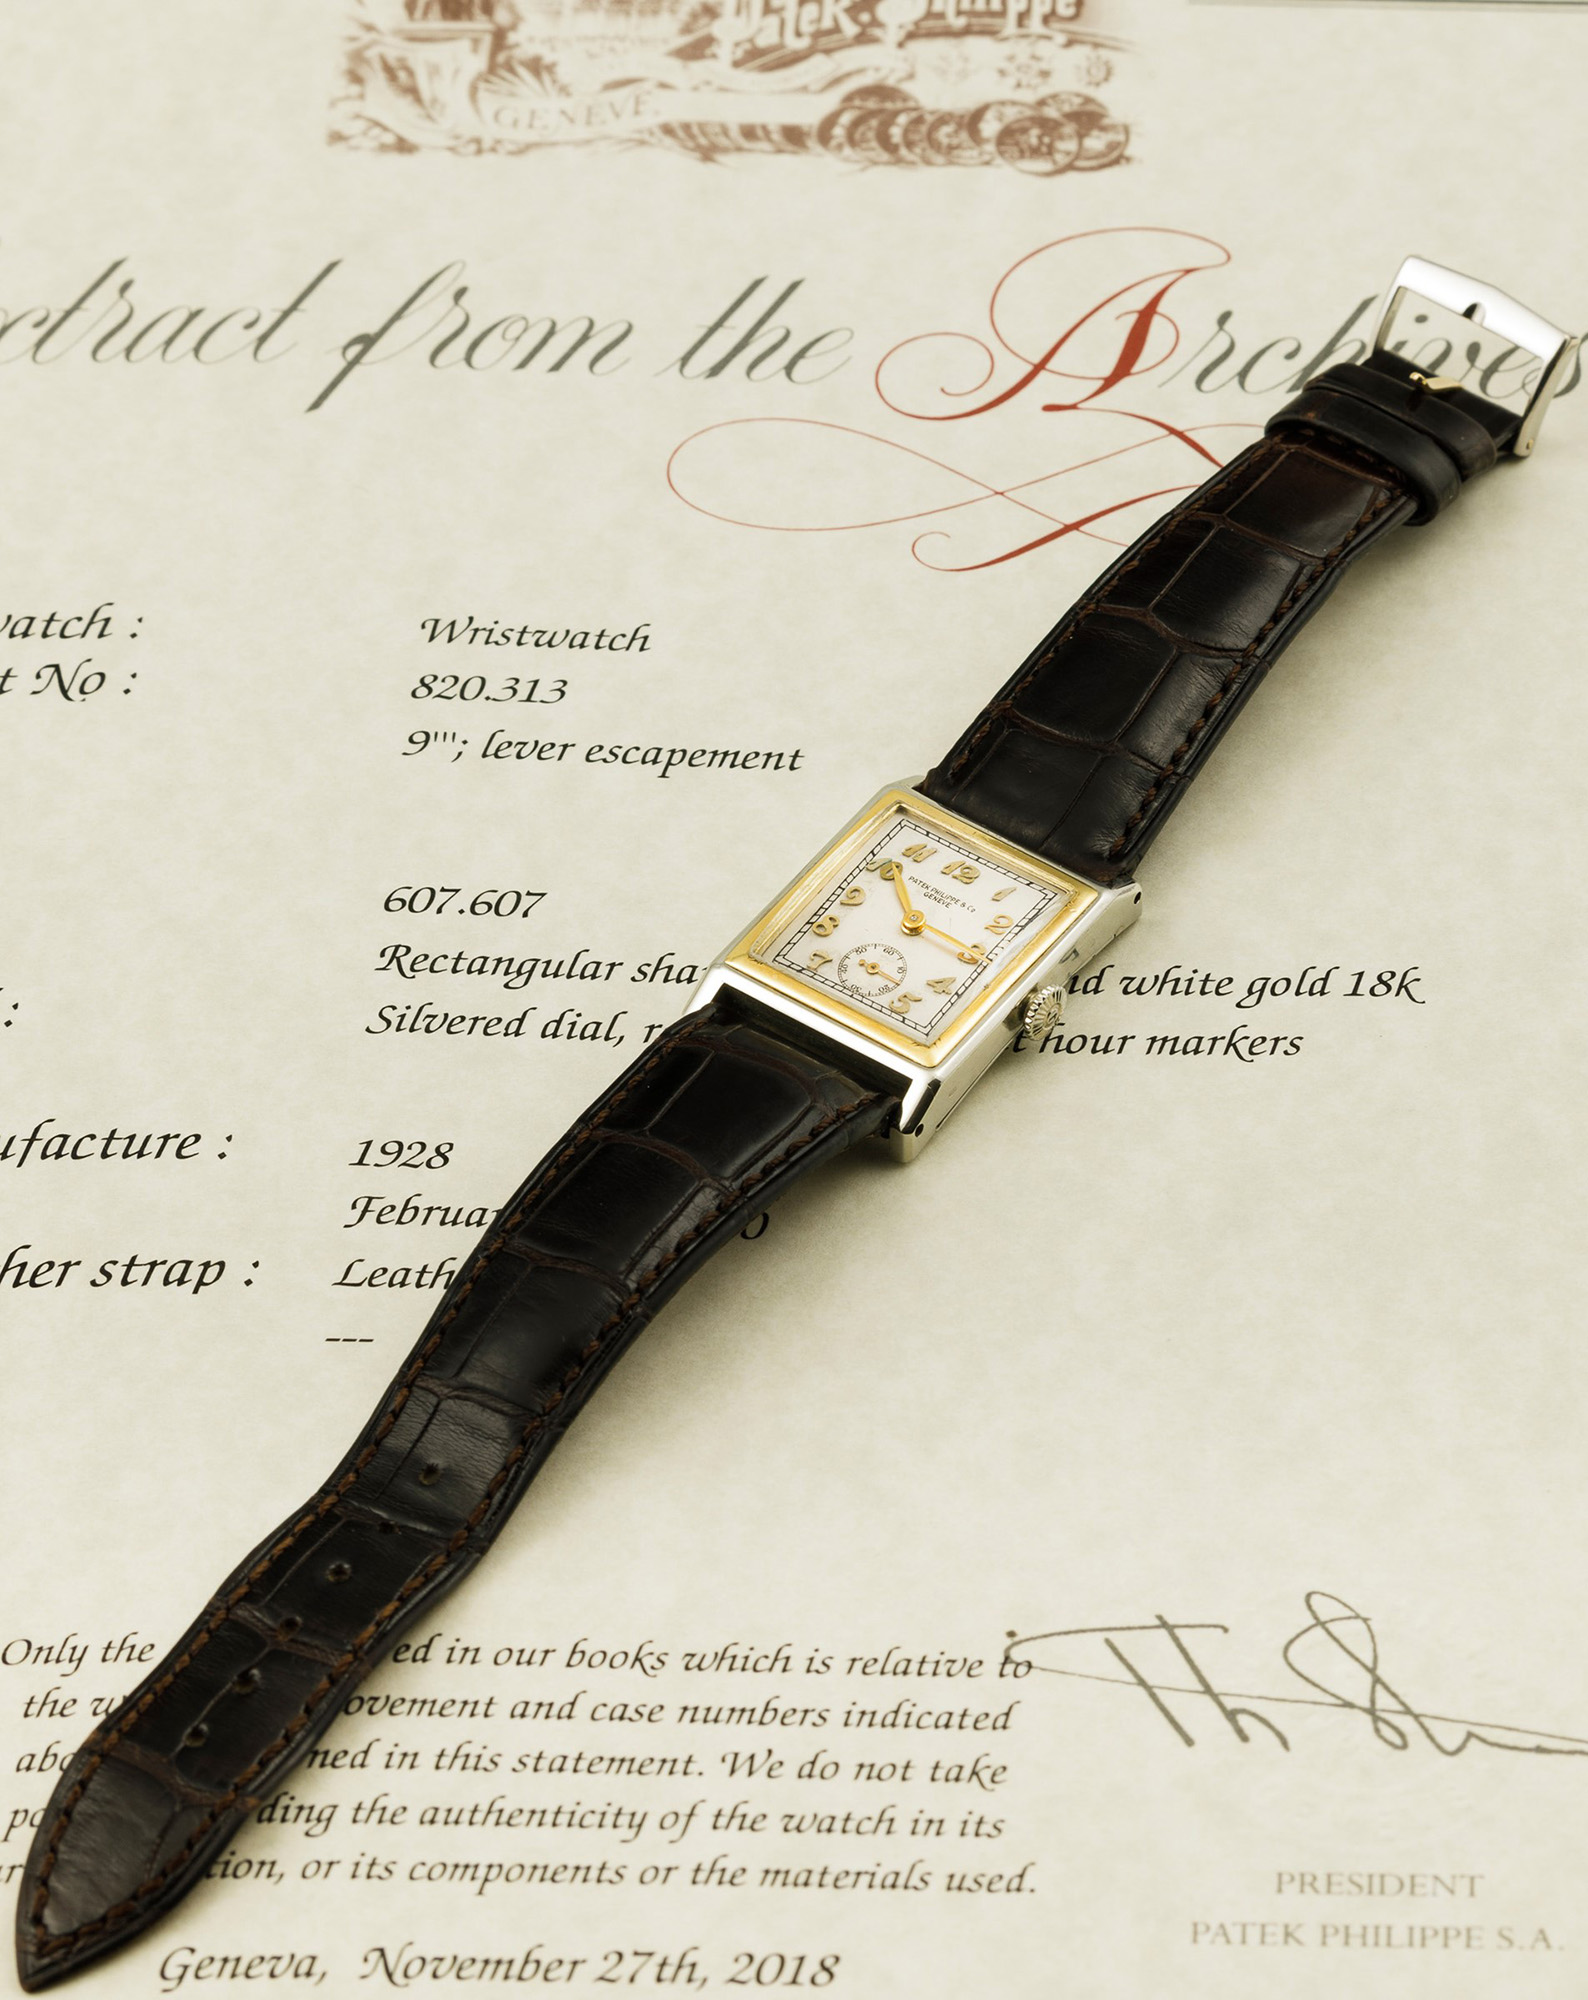 Patek Philippe
GENÈVE
xtract from the Archives
watch :
Wristwatch
t No :
820.313
9'''; lever escapement
607.607
Rectangular sha nd white gold 18k
:
Silvered dial, r t hour markers
ufacture :
1928
Februar
o
her strap :
Leath
---
11 12 1
10 2
9 3
8 4
7 5
PATEK PHILIPPE & Co
GENÈVE
60
Only the ed in our books which is relative to
the w ovement and case numbers indicated
abo med in this statement. We do not take
po ding the authenticity of the watch in its
tion, or its components or the materials used.
Geneva, November 27th, 2018
PRESIDENT
PATEK PHILIPPE S.A.